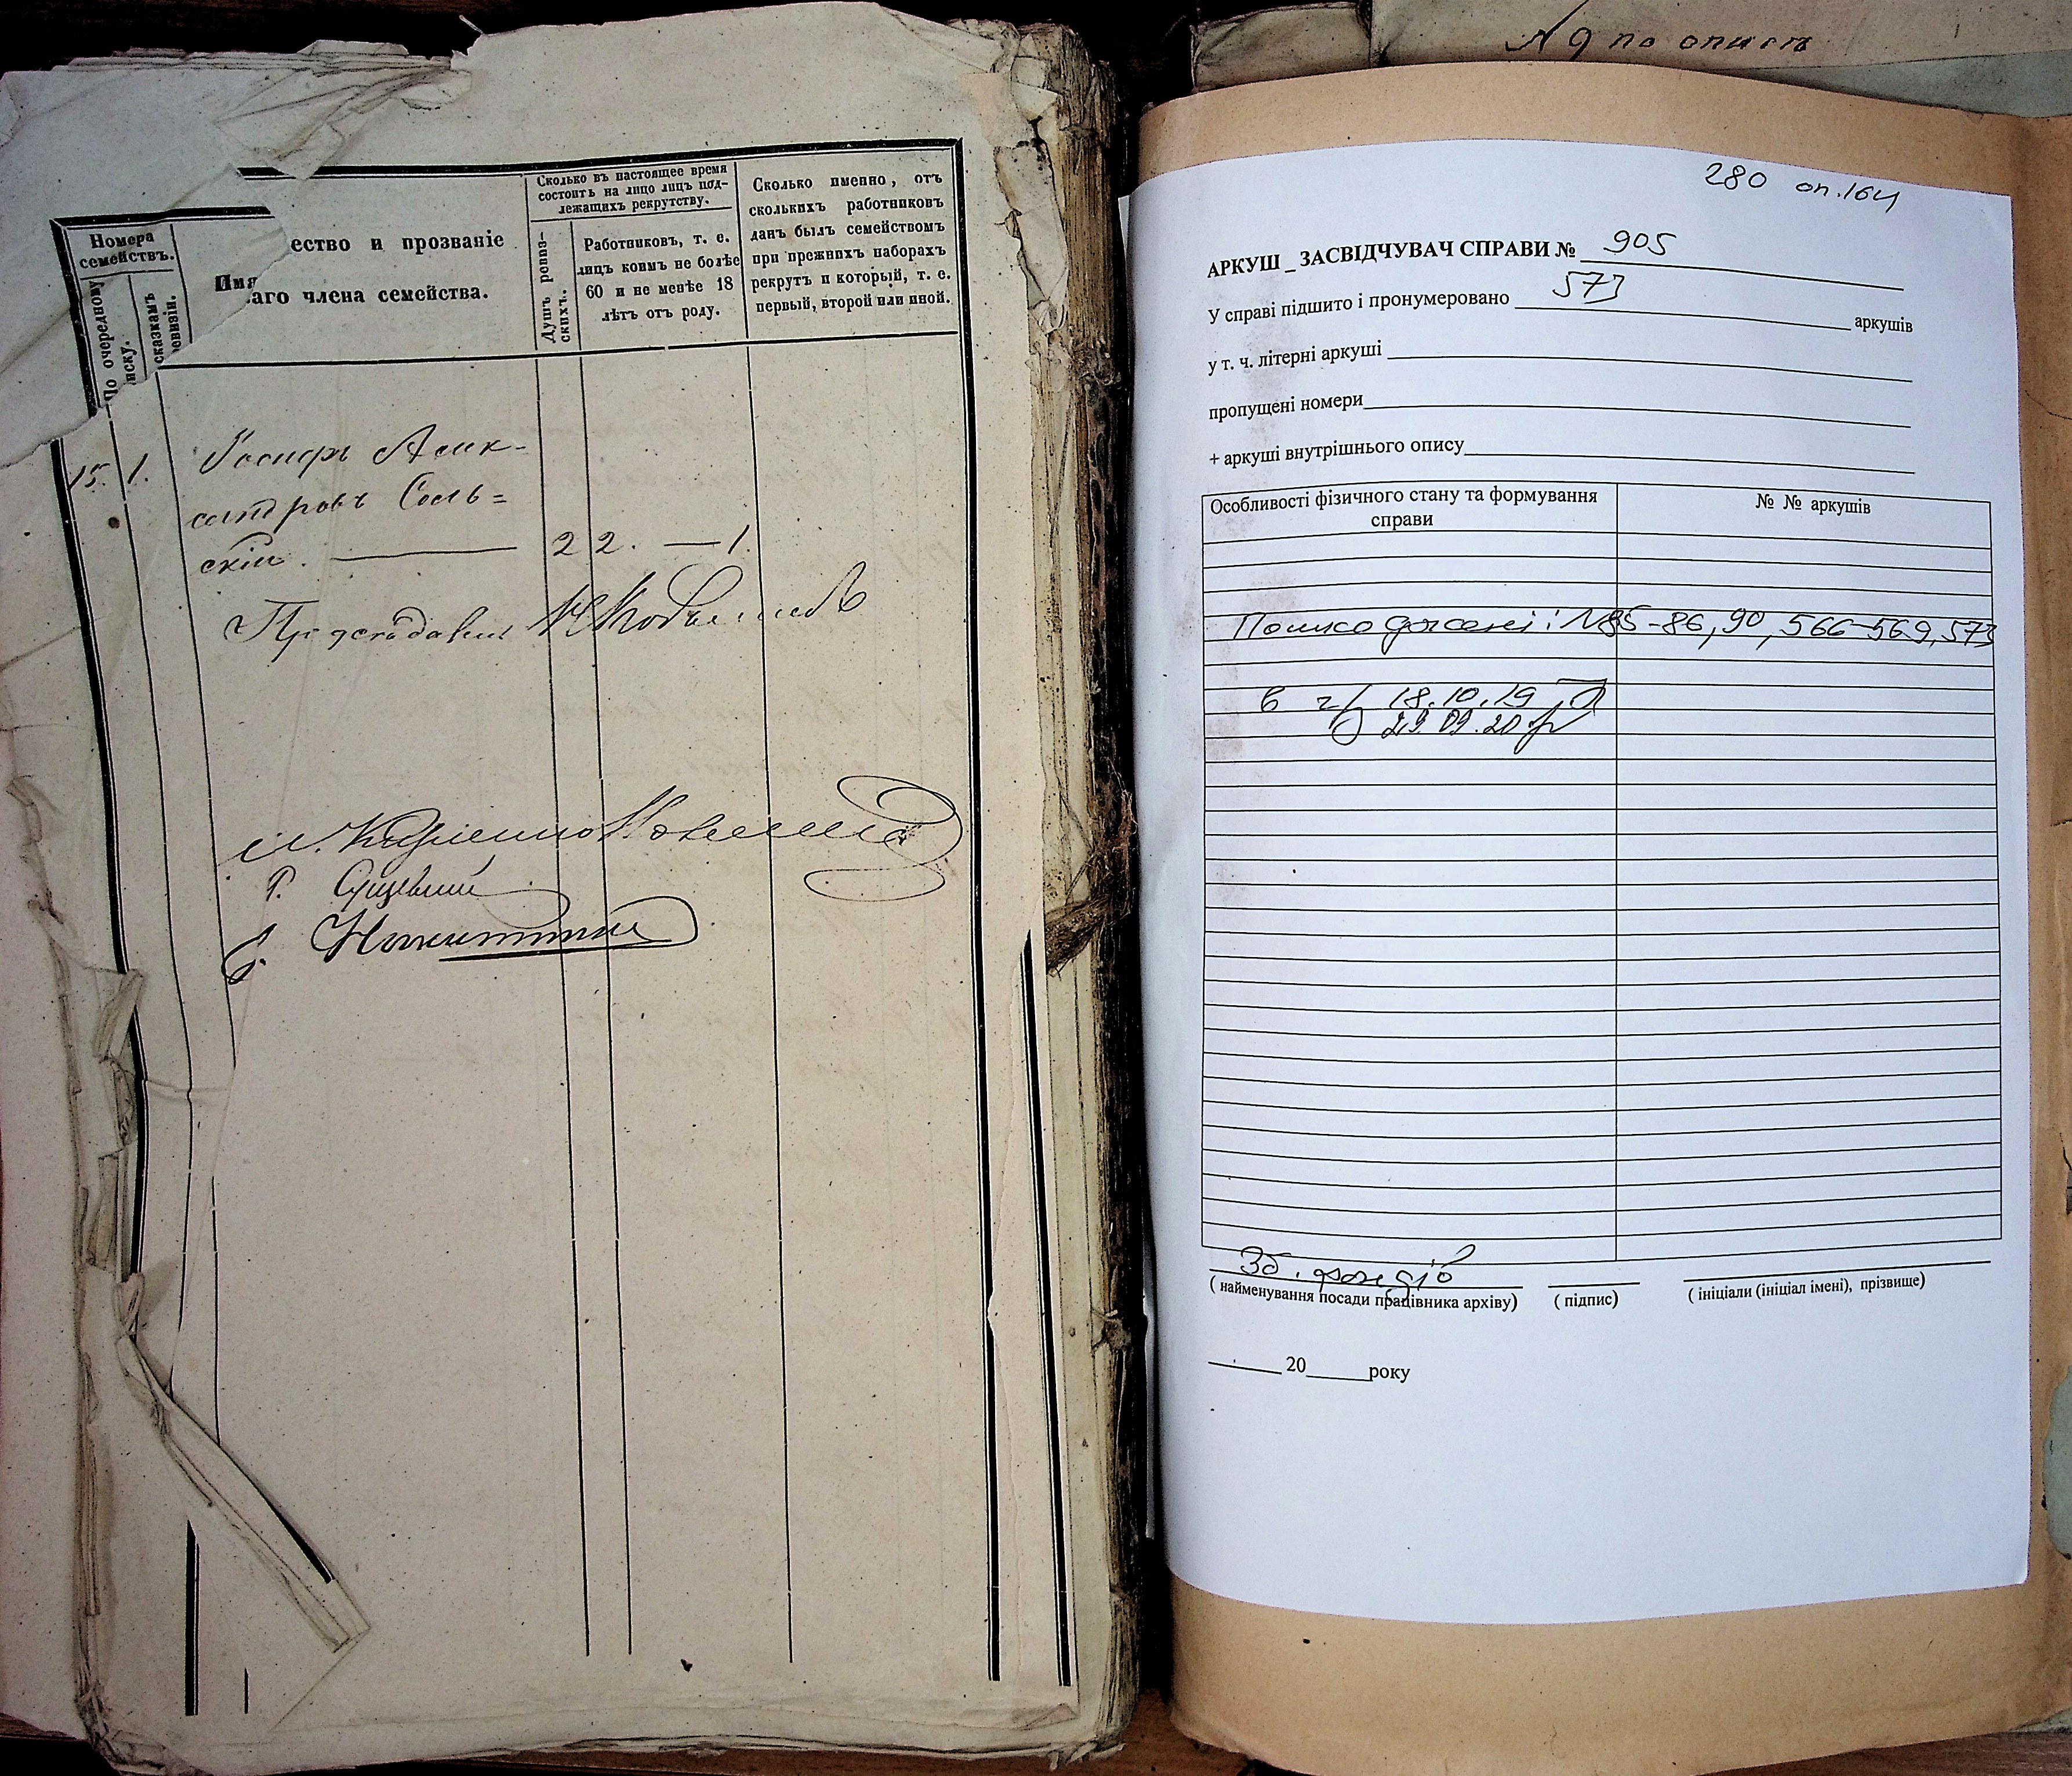 № 9 по описи
Номера
семействъ.
По очередному
списку.
сказкамъ
ревизіи.
Имя
ество и прозваніе
аго члена семейства.
Сколько въ настоящее время
состоитъ на лицо лицъ под-
лежащихъ рекрутству.
Душъ ревиз-
скихъ.
Работниковъ, т. е.
лицъ коимъ не болѣе
60 и не менѣе 18
лѣтъ отъ роду.
Сколько именно, отъ
сколькихъ работниковъ
данъ былъ семействомъ
при прежнихъ наборахъ
рекрутъ и который, т. е.
первый, второй или иной.
15. 1. Алек-
сандровъ Соль-
скій. 2 2. — 1.
280 оп.164
АРКУШ _ ЗАСВІДЧУВАЧ СПРАВИ № 905
У справі підшито і пронумеровано 573 аркушів
у т. ч. літерні аркуші
пропущені номери
+ аркуші внутрішнього опису
Особливості фізичного стану та формування
справи
№ № аркушів
Пошкоджені: №85-86, 90, 566-569, 573
18.10.19
29.09.20
Зб. фондів
( найменування посади працівника архіву) ( підпис) ( ініціали (ініціал імені), прізвище)
20 року